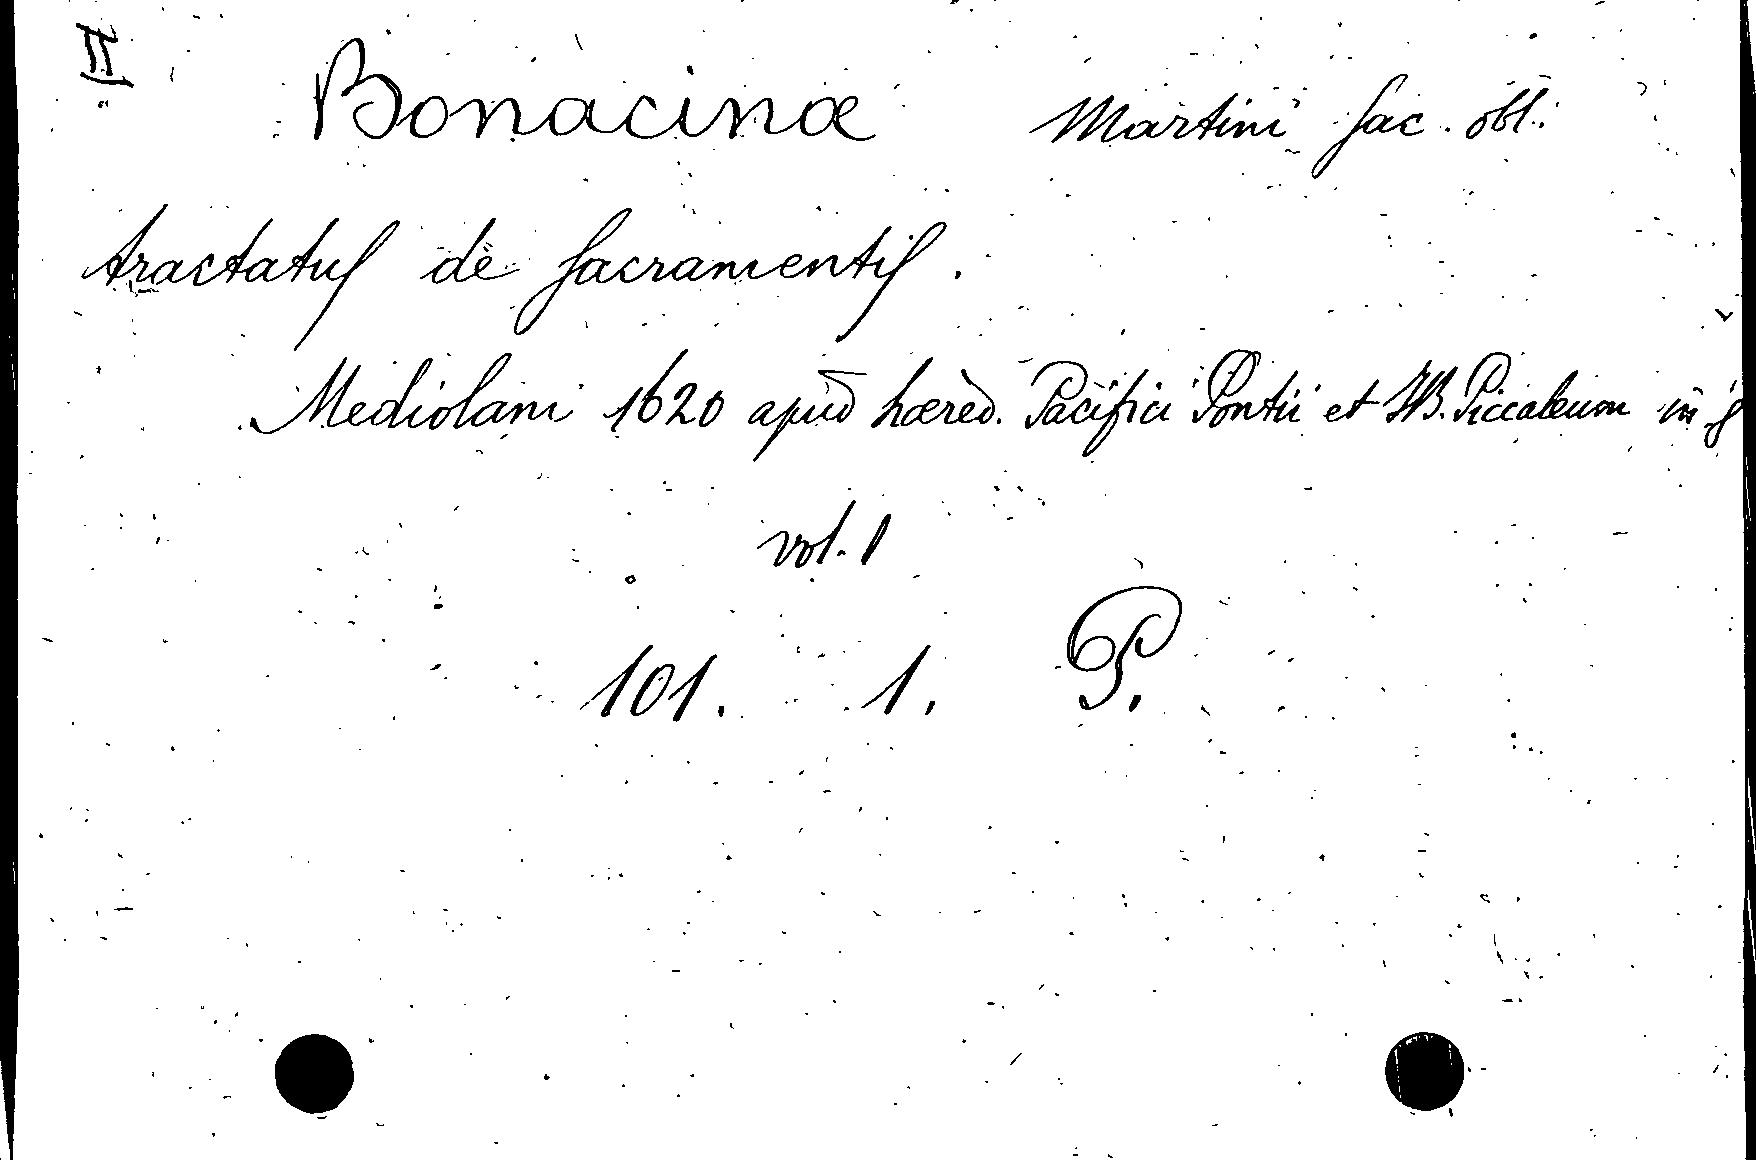 II
Bonacinæ Martini sac. obl.
tractatus de sacramentis.
Mediolani 1620 apud hæred. Pacifici Pontii et I.B. Piccaleum in
vol. 1
101. 1. P.